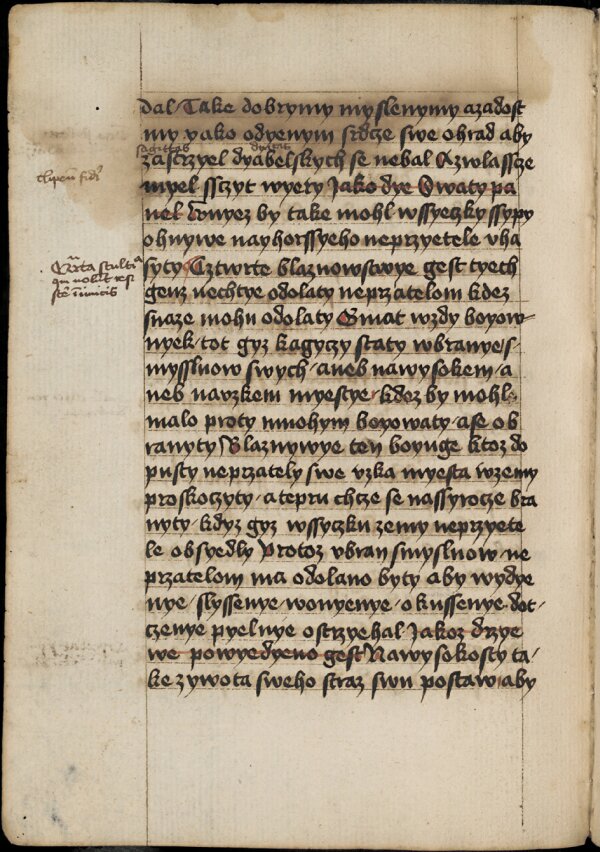 dal Take dobrymy myslenymy azadost
my yako odyenym srdcze swe ohrad aby
sagittas dyaboli
zastrzyel dyabelskych se nebal Azwlassze
clipeum fidei
myel ssczyt wyery Jako dye Swaty pa
wel Wnyez by take mohl wssyeczky ssypy
ohnywe nayhorssyeho neprzyetele vha
Quarta stulticia
qui nolunt resi
stere inimicis
syty Cztwrte blaznowstwye gest tyech
genz nechtye odolaty neprzatelom kdez
snaze mohu odolaty Gmat wzdy boyow-
nyek tot gyz kagyczy staty wbranye/
myssluow swych aneb nawysokem a
neb nauzkem myestye kdez by mohl
malo proty mnohym boyowaty a se ob
ranyty Blaznywye ten boyuge ktoz do
pusty neprzately swe vzka myesta wzemy
proskoczyty a tepru chcze se nassyrocze bra
nyty kdyz gyz wssyczku zemy neprzyete
le obsyedly Protoz vbran smysluow ne
przatelom ma odolano byty aby wydye
nye slyssenye wonyenye okussenye dot
czenye pyelnye ostrzyehal Jakoz drzye
we powyedyeno gest Nawysokosty ta
ke zywota sweho straz swu postaw aby